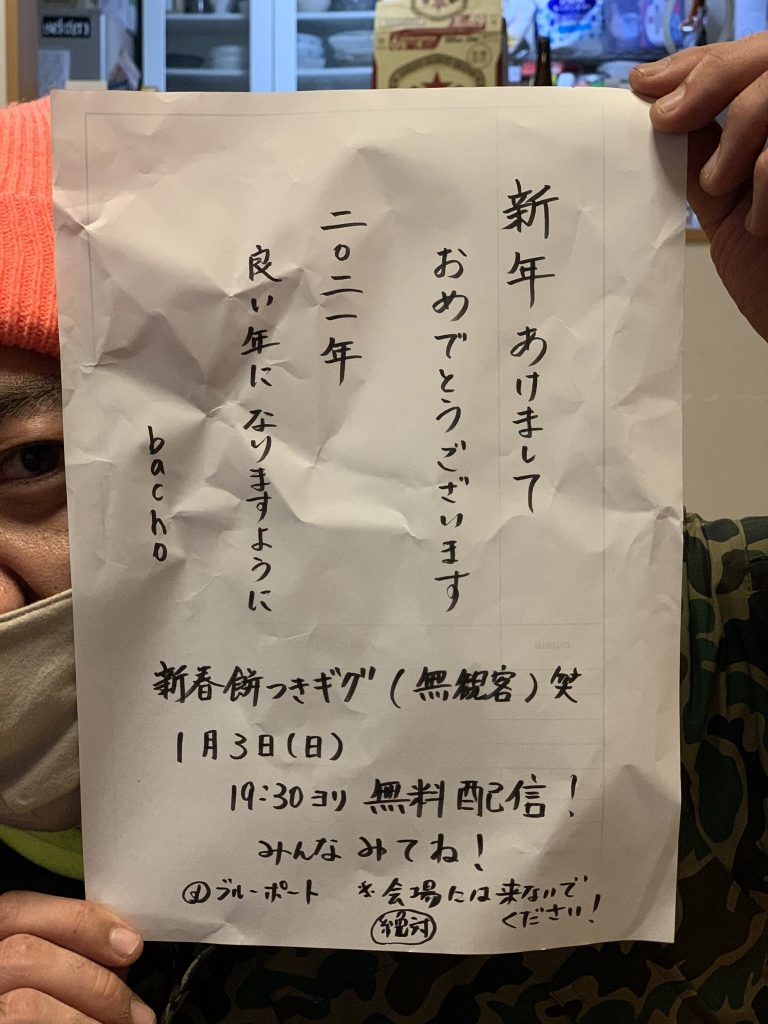 新年あけまして
おめでとうございます
二〇二一年
良い年になりますように
bacho
新春餅つきギグ(無観客)笑
1月3日(日)
19:30ヨリ 無料配信!
みんなみてね!
@ブルーポート ※会場には来ないで
ください!
絶対